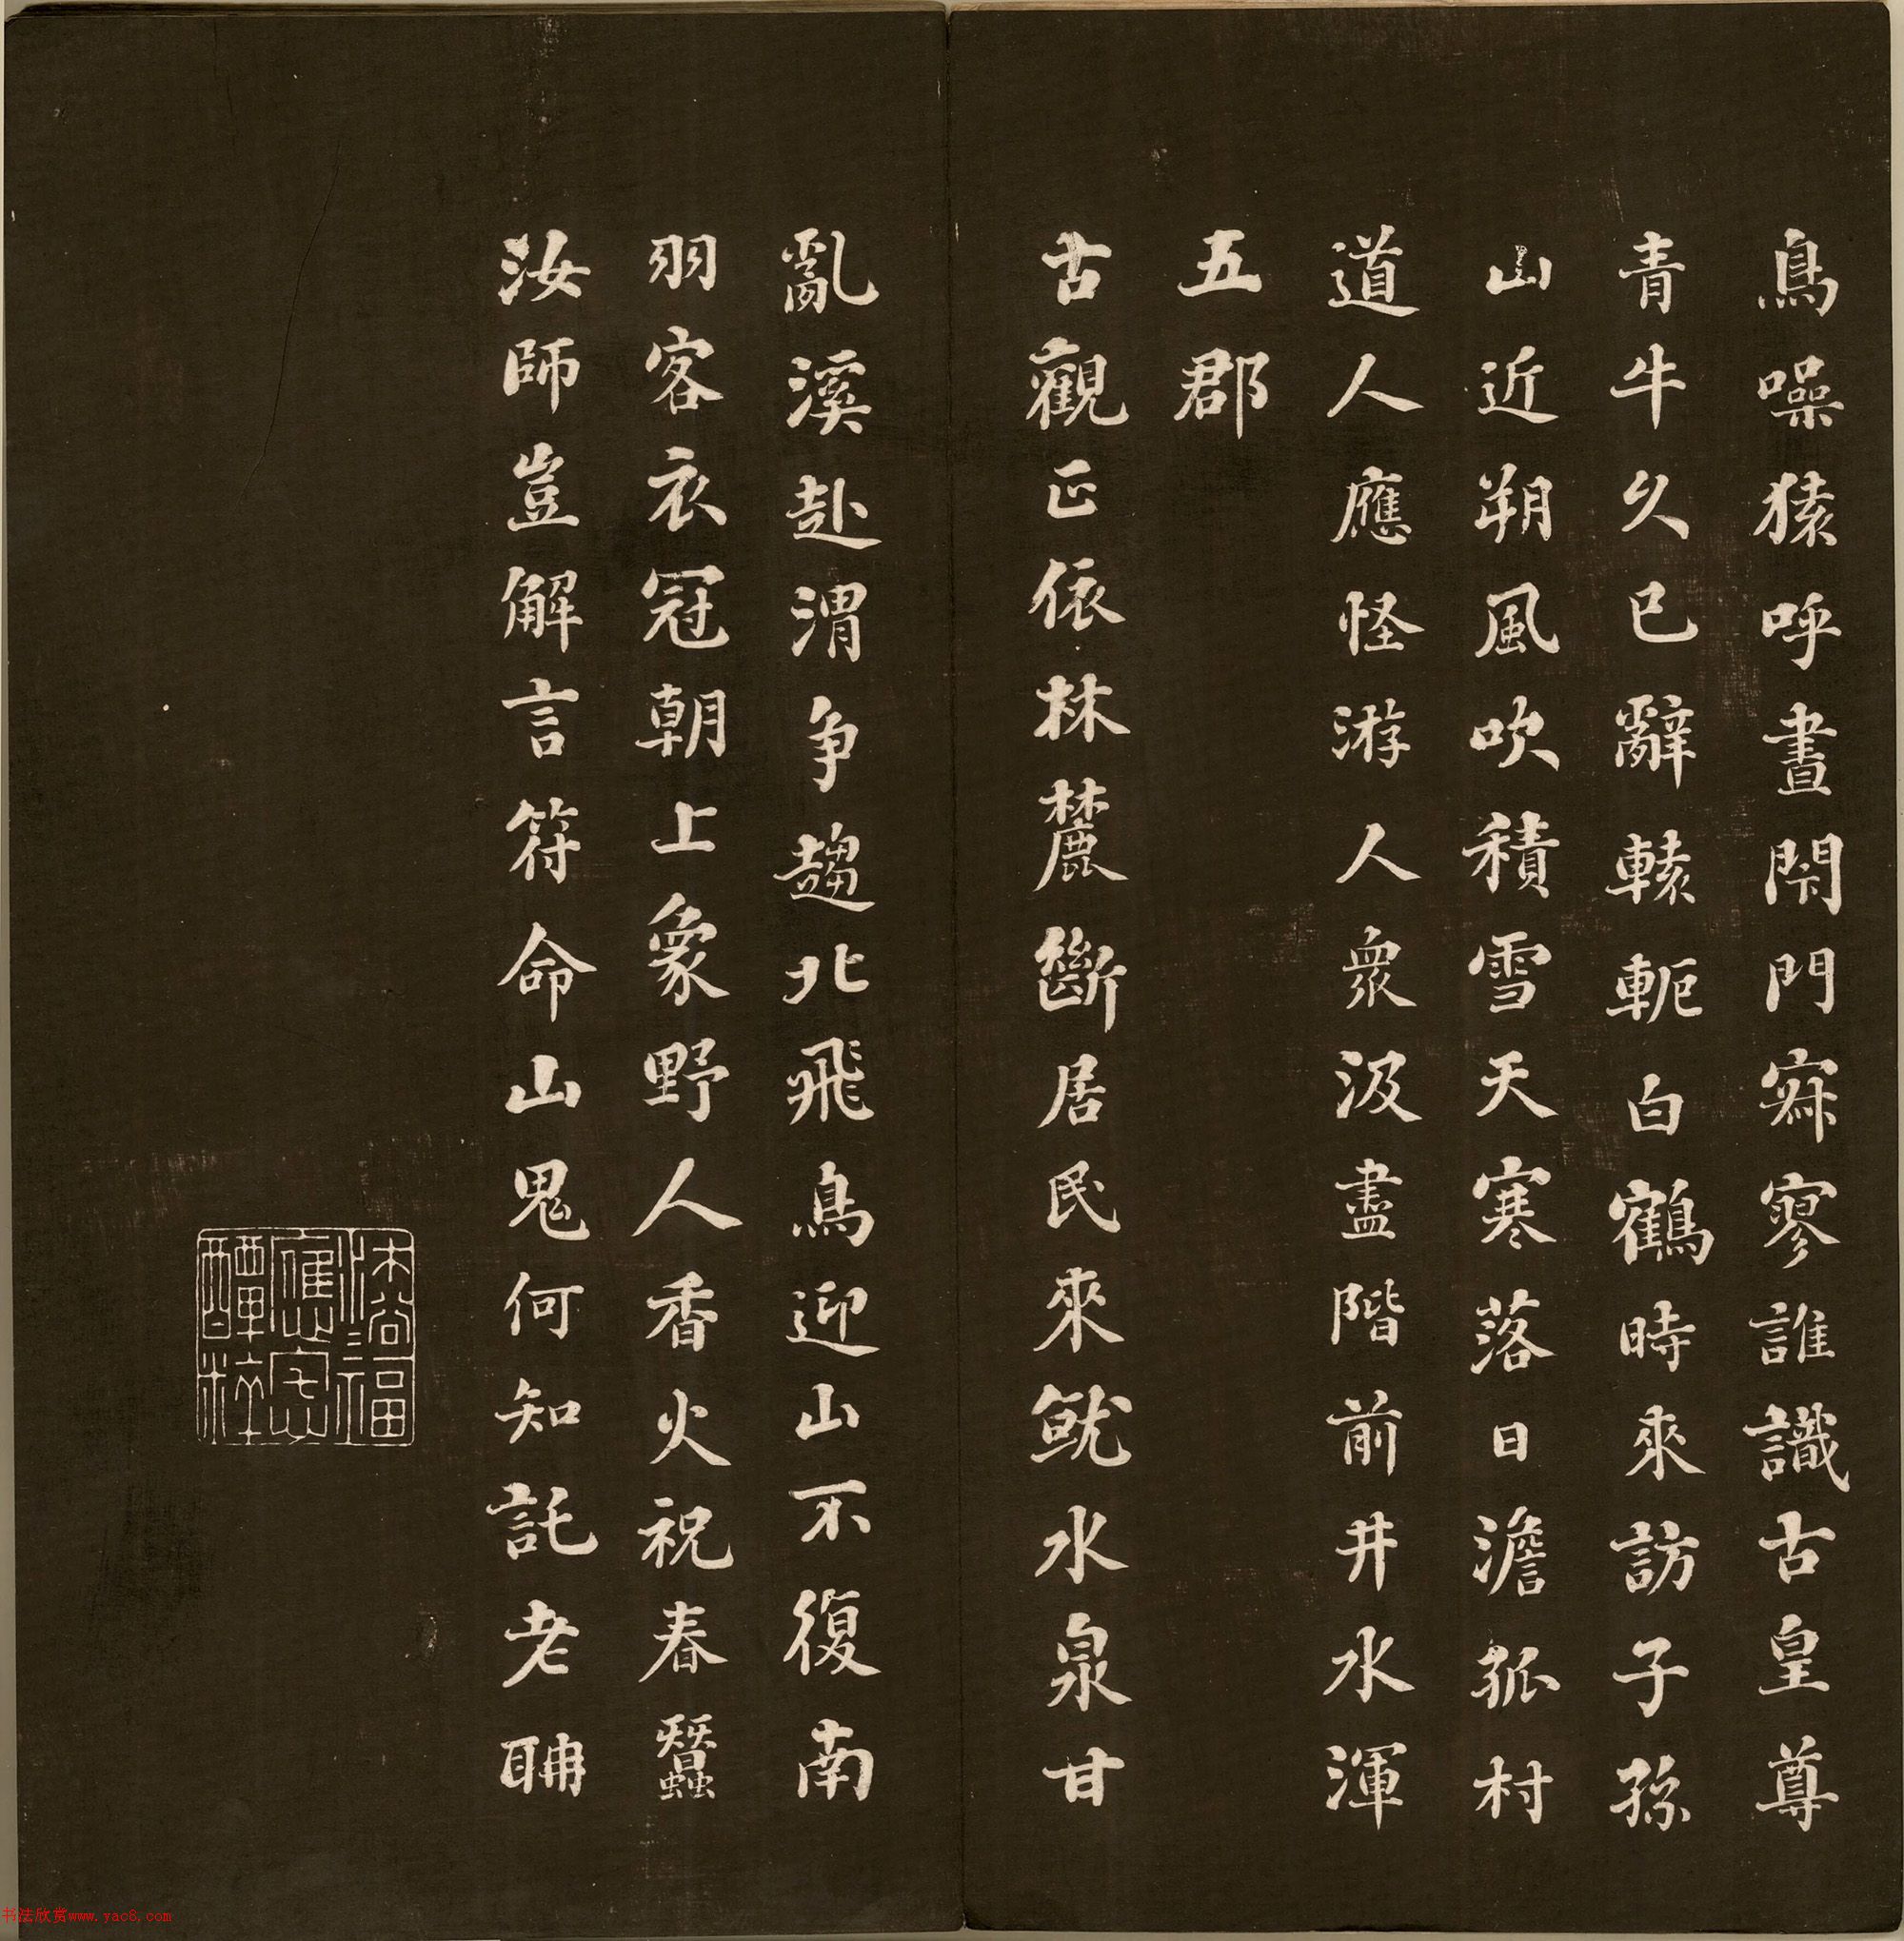 鳥噪猿呼晝閇門寂寥誰識古皇尊
青牛久已辭轅軛白鶴時來訪子孫
山近朔風吹積雪天寒落日澹孤村
道人應怪游人衆汲盡階前井水渾
五郡
古觀正依林麓斷居民來就水泉甘
亂溪赴渭争趨北飛鳥迎山不復南
羽客衣冠朝上象野人香火祝春蠶
汝師豈解言符命山鬼何知託老聃
书法欣赏www.yac8.com